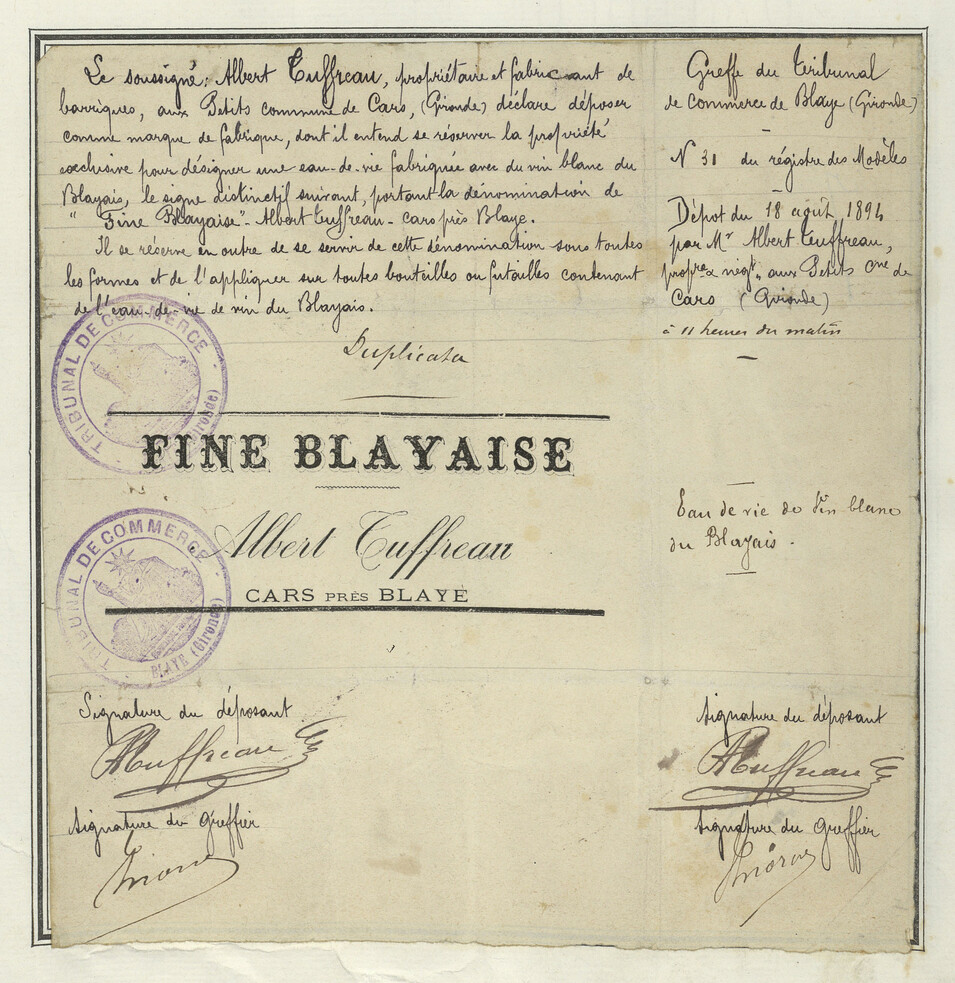 Le soussigné: Albert Tuffreau, propriétaire et fabricant de
barriques, aux Petits commune de Cars, (Gironde) déclare déposer
comme marque de fabrique, dont il entend se réserver la propriété
exclusive pour désigner une eau-de-vie fabriquée avec du vin blanc du
Blayais, le signe distinctif suivant, portant la dénomination de
"Fine Blayaise" - Albert Tuffreau - Cars près Blaye.
Il se réserve en outre de se servir de cette dénomination sous toutes
les formes et de l'appliquer sur toutes bouteilles ou futailles contenant
de l'eau-de-vie de vin du Blayais.
Duplicata
TRIBUNAL DE COMMERCE
(Gironde)
FINE BLAYAISE
Albert Tuffreau
CARS PRÈS BLAYE
TRIBUNAL DE COMMERCE
BLAYE (Gironde)
Signature du déposant
ATuffreau
Signature du Greffier
Greffe du Tribunal
de Commerce de Blaye (Gironde)
N 31 du régistre des Modèles
Dépot du 18 août 1894
par Mr Albert Tuffreau,
propre & négt aux Petits Cne de
Cars (Gironde)
à 11 heures du matin
Eau de vie de Vin blanc
du Blayais.
Signature du déposant
ATuffreau
Signature du Greffier